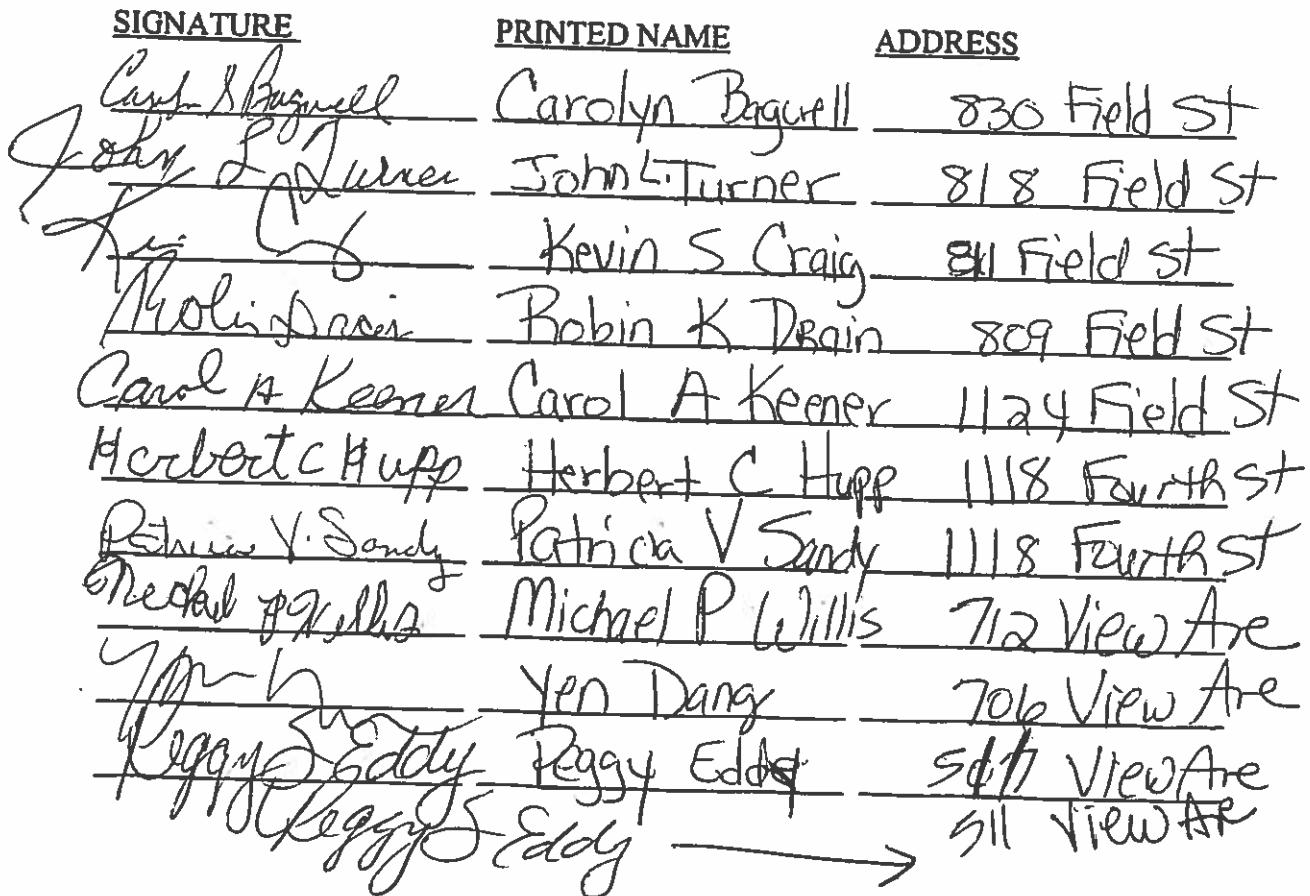 SIGNATURE PRINTED NAME ADDRESS
Bagwell Carolyn Bagwell 830 Field St
John L Turner John L. Turner 818 Field St
Kevin S Craig 811 Field St
Robin Drain Robin K Drain 809 Field St
Carol A Keener Carol A Keener 1124 Field St
Herbert C Hupp Herbert C Hupp 1118 Fourth St
Patricia V. Sandy Patricia V Sandy 1118 Fourth St
Michael P Willis Michael P Willis 712 View Ave
Yen Dang 706 View Ave
Peggy S Eddy Peggy Eddy View Ave
Peggy S Eddy → 511 View Ave